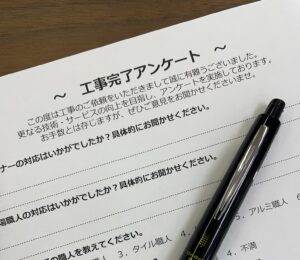 ～ 工事完了アンケート ～
この度は工事のご依頼をいただきまして誠に有難うございました。
更なる技術・サービスの向上を目指し、アンケートを実施しております。
お手数とは存じますが、ぜひご意見をお聞かせくださいませ。
ナーの対応はいかがでしたか？具体的にお聞かせください。
職人の対応はいかがでしたか？具体的にお聞かせください。
職人を教えてください。
3．タイル職人
5．アルミ職人
4．不満